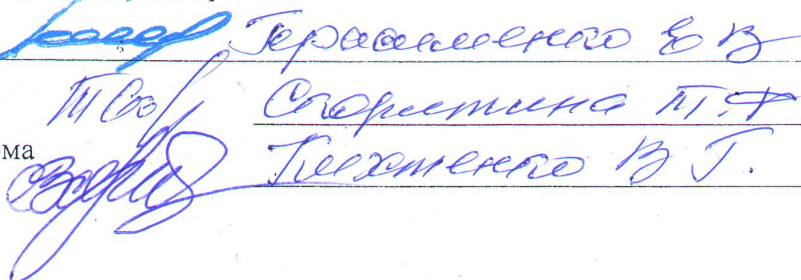 Герасименко Е В
Скоритина Т.Ф
ма
Тихтенко В Г.